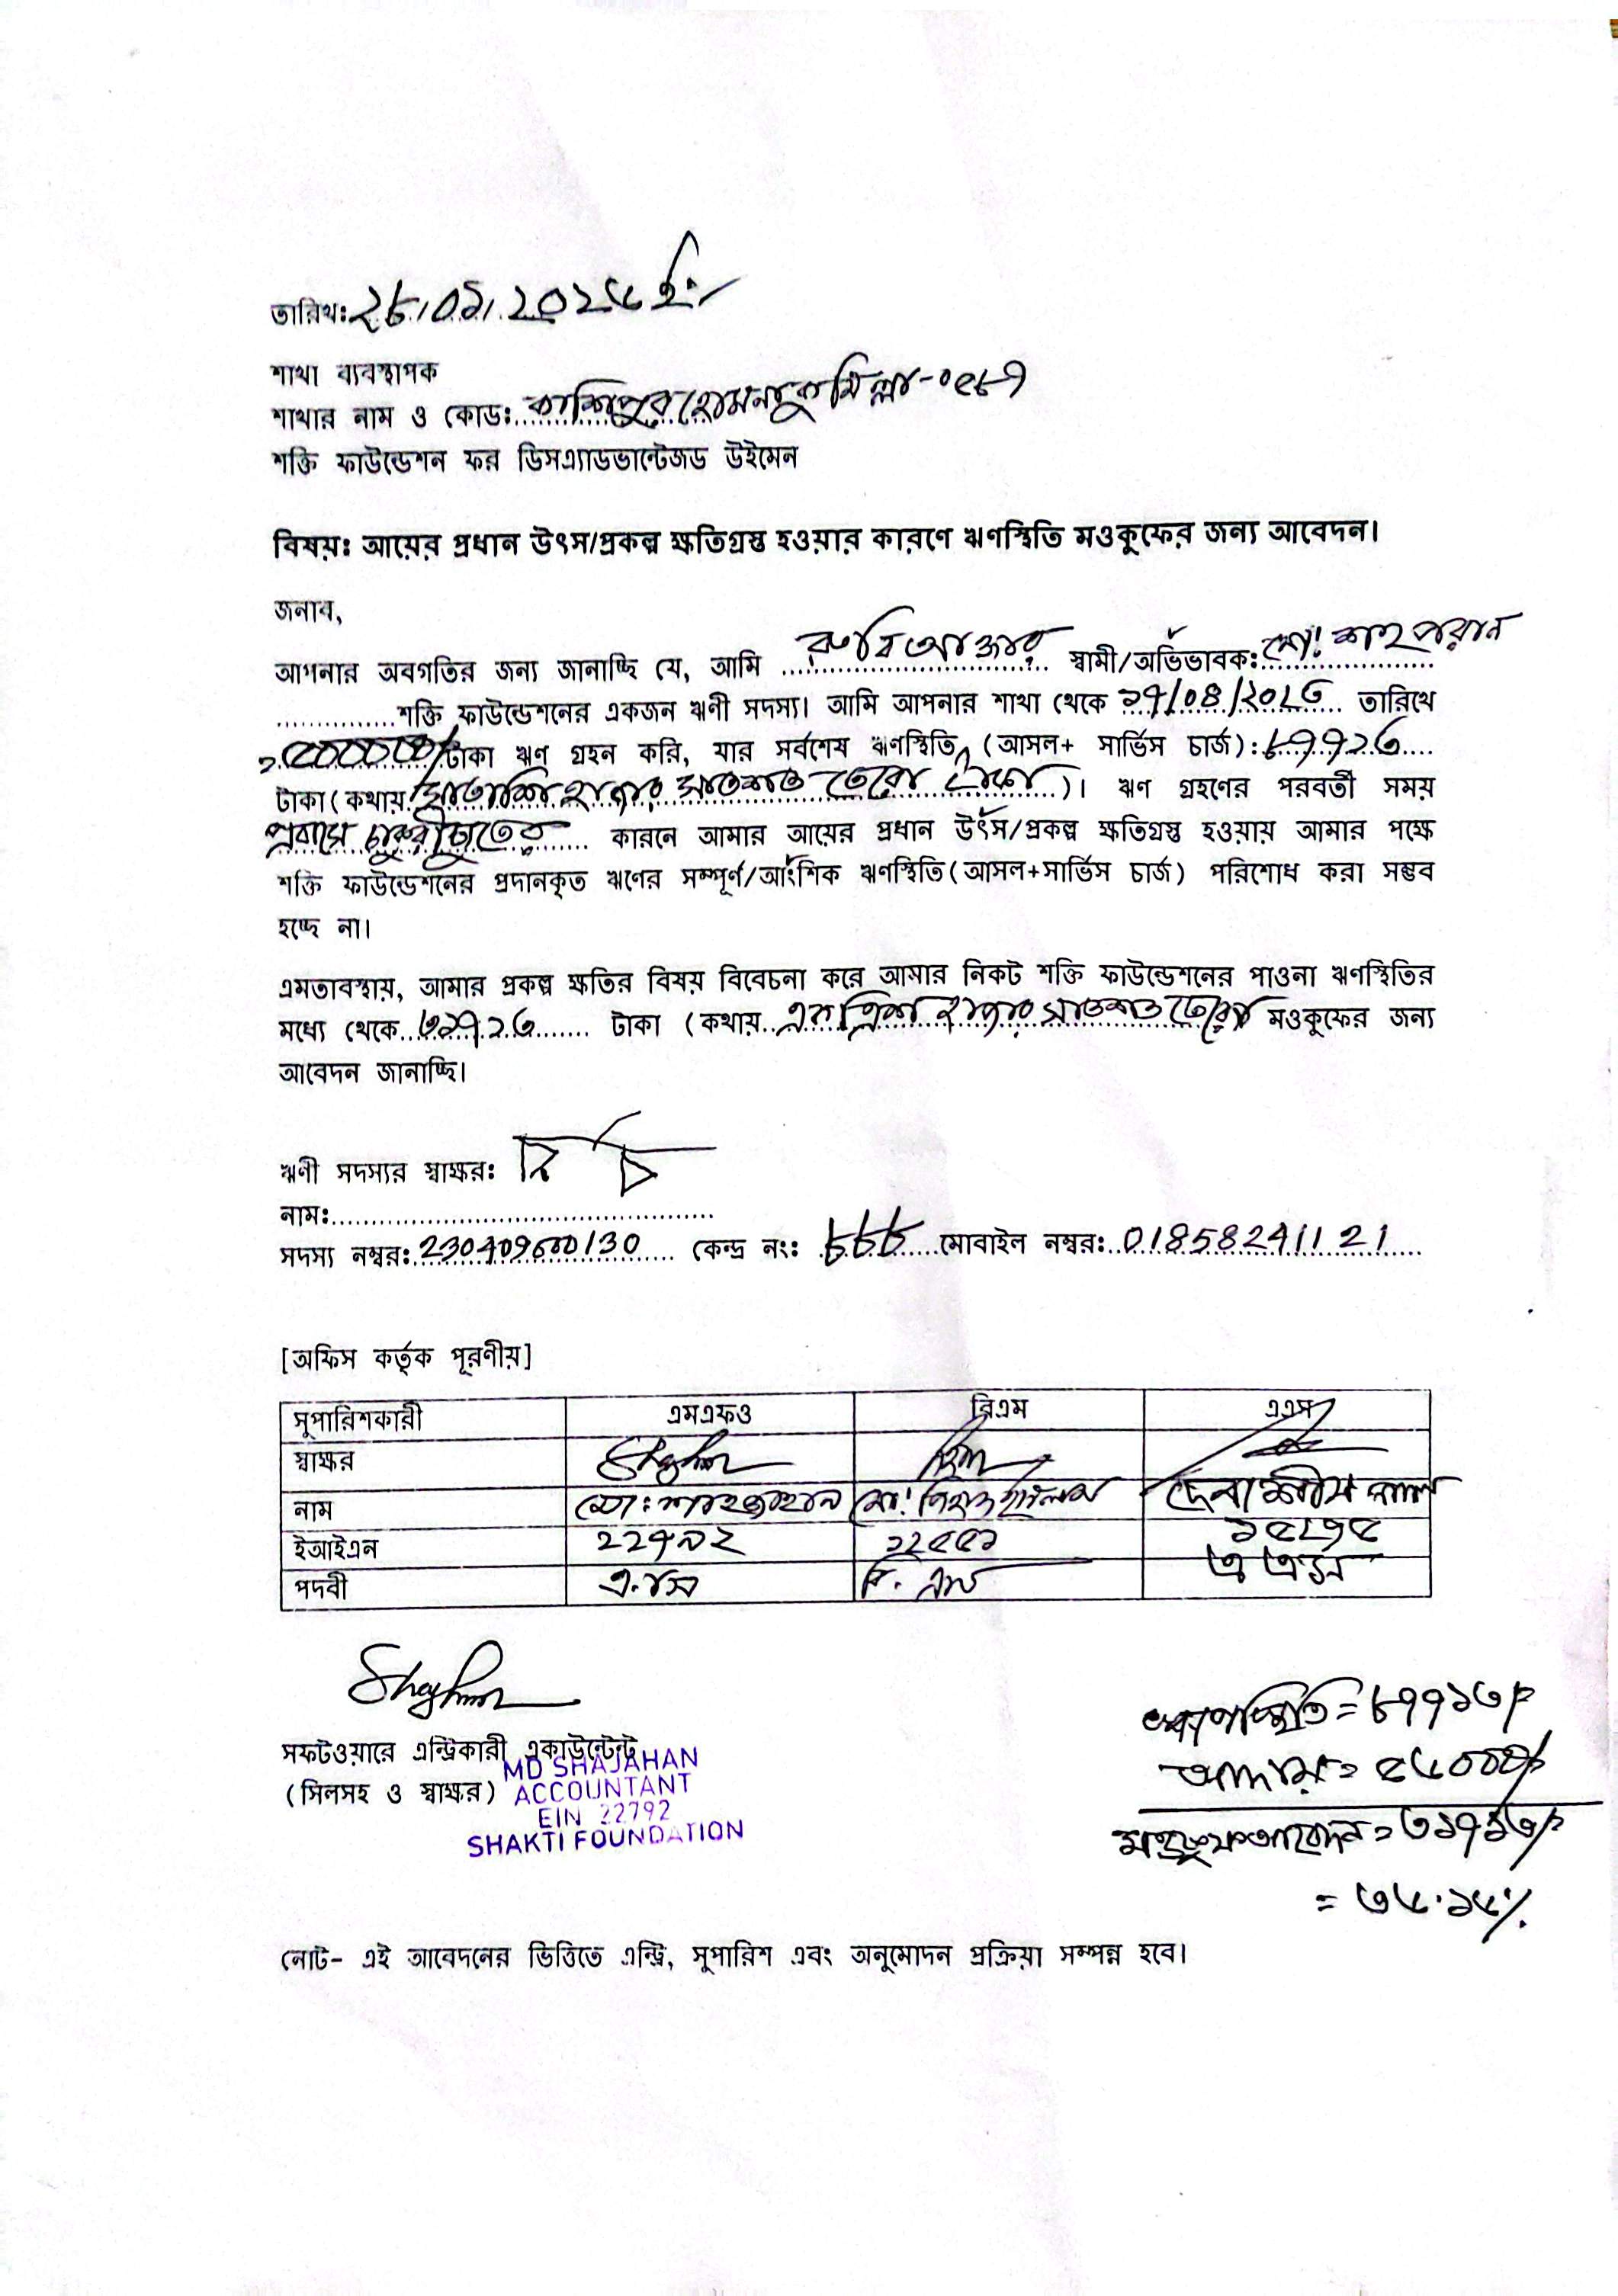 তারিখ: ২৮/০৯/২০২৫ ইং
শাখা ব্যবস্থাপক
শাখার নাম ও কোড: কাশিপুর হোমনা কুমিল্লা-০৫৮৭
শক্তি ফাউন্ডেশন ফর ডিসএ্যাডভান্টেজড উইমেন
বিষয়ঃ আয়ের প্রধান উৎস/প্রকল্প ক্ষতিগ্রস্ত হওয়ার কারণে ঋণস্থিতি মওকুফের জন্য আবেদন।
জনাব,
আপনার অবগতির জন্য জানাচ্ছি যে, আমি রুবি আক্তার স্বামী/অভিভাবক: মো! শাহ পরান
শক্তি ফাউন্ডেশনের একজন ঋণী সদস্য। আমি আপনার শাখা থেকে ১৭/০৪/২০২৩ তারিখে
টাকা ঋণ গ্রহন করি, যার সর্বশেষ ঋণস্থিতি (আসল+ সার্ভিস চার্জ): ৮৭৭১৩
টাকা (কথায় সাতাশি হাজার সাতশত তেরো টাকা)। ঋণ গ্রহণের পরবর্তী সময়
প্রবাসে চাকুরীচুতের কারনে আমার আয়ের প্রধান উৎস/প্রকল্প ক্ষতিগ্রস্ত হওয়ায় আমার পক্ষে
শক্তি ফাউন্ডেশনের প্রদানকৃত ঋণের সম্পূর্ণ/আংশিক ঋণস্থিতি (আসল+সার্ভিস চার্জ) পরিশোধ করা সম্ভব
হচ্ছে না।
এমতাবস্থায়, আমার প্রকল্প ক্ষতির বিষয় বিবেচনা করে আমার নিকট শক্তি ফাউন্ডেশনের পাওনা ঋণস্থিতির
মধ্যে থেকে ৩১৭১৩ টাকা (কথায় একত্রিশ হাজার সাতশত তেরো মওকুফের জন্য
আবেদন জানাচ্ছি।
ঋণী সদস্যর স্বাক্ষর:
নাম:
সদস্য নম্বর: কেন্দ্র নং: ৮৮৮ মোবাইল নম্বর: 01858241121
[অফিস কর্তৃক পূরণীয়]
সুপারিশকারী এমএফও বিএম এএস
স্বাক্ষর
নাম মো: শাহজাহান দেবাশীষ পাল
ইআইএন ২২৭৯২ ১২৫৫১
পদবী এ এস
সফটওয়ারে এন্ট্রিকারী একাউন্টেন্ট
(সিলসহ ও স্বাক্ষর)
MD SHAJAHAN
ACCOUNTANT
EIN 22792
SHAKTI FOUNDATION
ঋণস্থিতি = ৮৭৭১৩/-
আদায় = ৫৬০০০/-
মওকুফ আবেদন = ৩১৭১৩/-
= ৩৬.১৫%
নোট- এই আবেদনের ভিত্তিতে এন্ট্রি, সুপারিশ এবং অনুমোদন প্রক্রিয়া সম্পন্ন হবে।